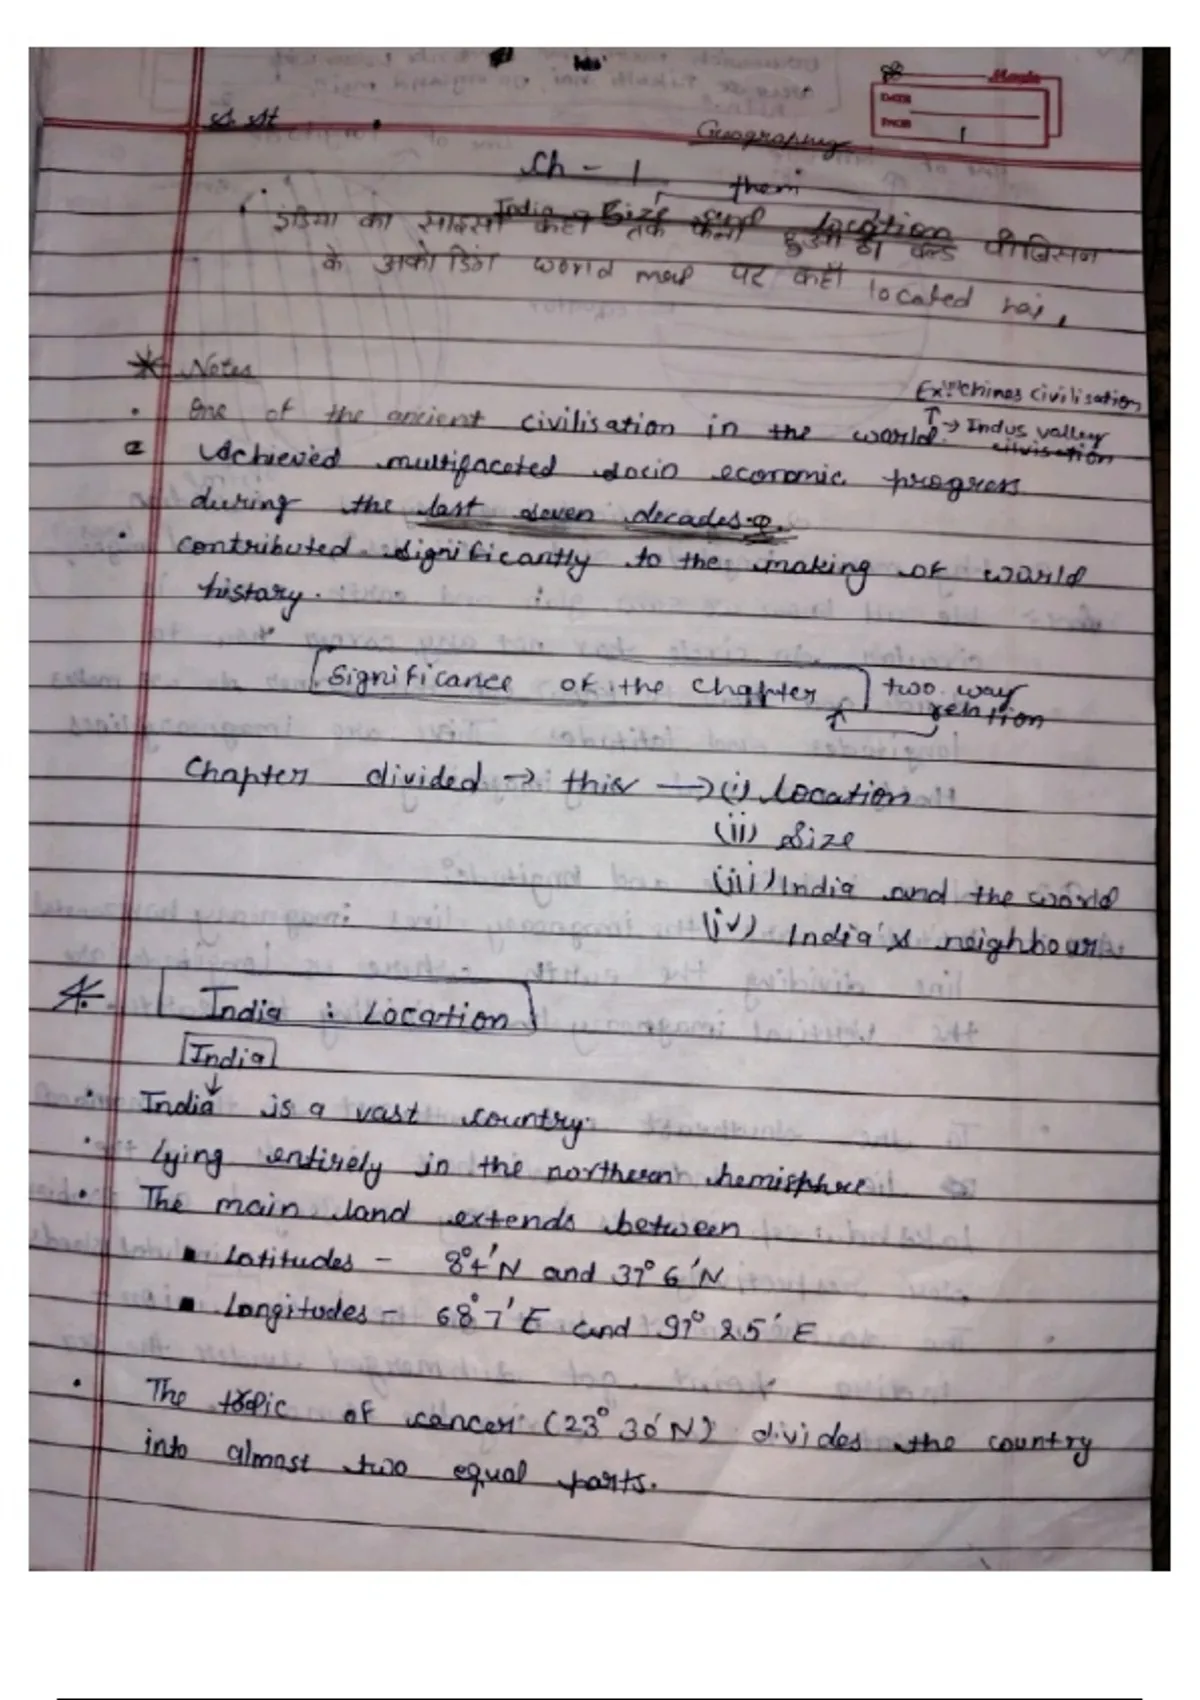 S. St
Geography
DATE
PAGE 1
Ch - 1
them
India - Size and location
इंडिया का साइस कहा तक फैला हुआ है वर्ल्ड
के अकोर्डिंग world map पर कहाँ located hai,
* Notes
Ex:- Chines civilisation
• One of the ancient civilisation in the world.
↑→ Indus valley
civisation
Achieved multifaceted socio economic progress
during the last seven decades.
• contributed significantly to the making of world
history.
Significance of the Chapter
two way
relation
Chapter divided → this → (i) Location
(ii) Size
(iii) India and the world
(iv) India's neighbours
India : Location
India
↓
• India is a vast country.
• Lying entirely in the northern hemisphere
• The main land extends between
▪ Latitudes - 8°4'N and 37°6'N
▪ Longitudes - 68°7'E and 97°25'E
• The tropic of cancer (23°30'N) divides the country
into almost two equal parts.